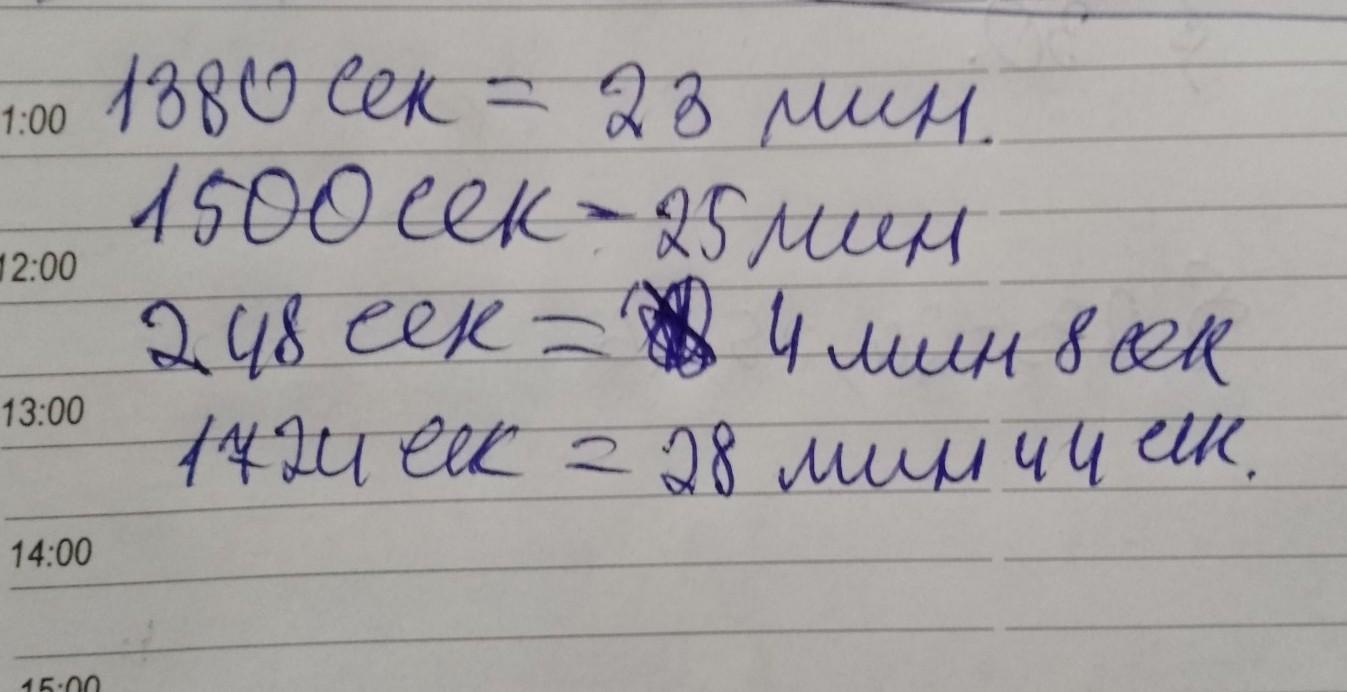 1:00 1380 сек = 23 мин.
1500 сек - 25 мин
12:00
248 сек = 4 мин 8 сек
13:00
1724 сек = 28 мин 44 сек.
14:00
15:00